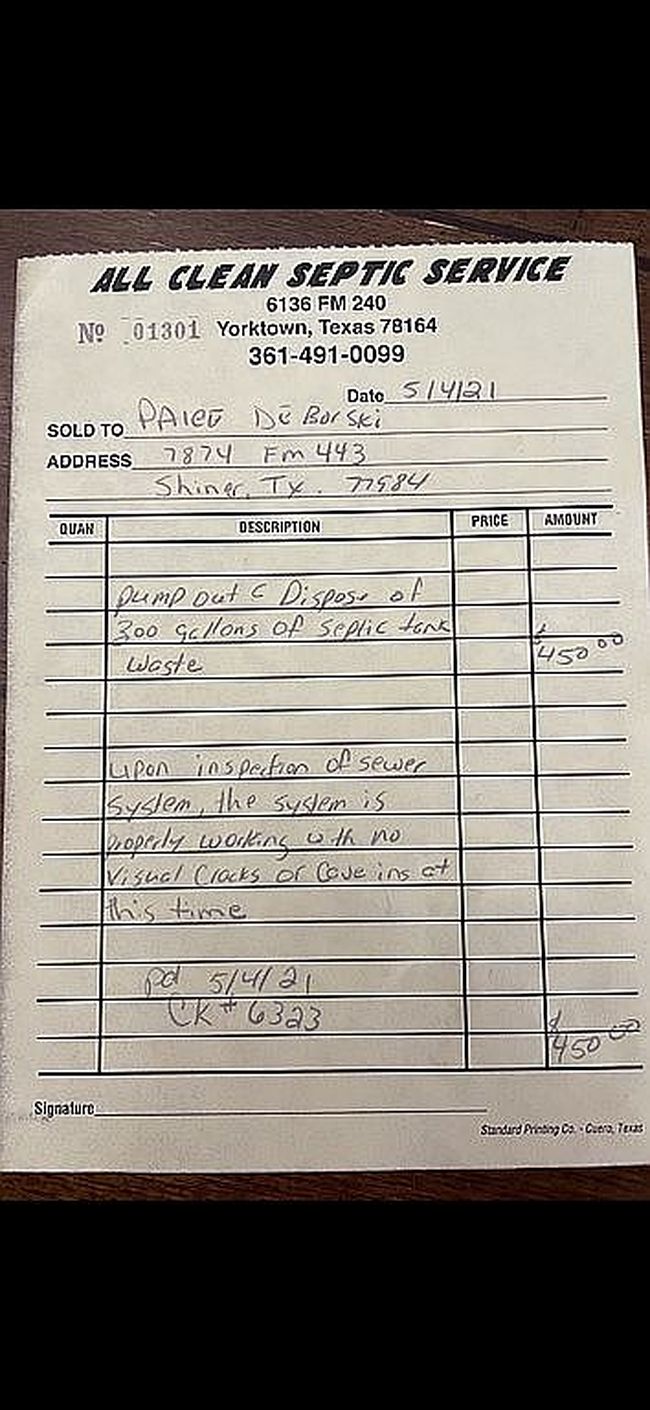 ALL CLEAN SEPTIC SERVICE
6136 FM 240
Nº 01301 Yorktown, Texas 78164
361-491-0099
Date 5/4/21
SOLD TO PAIGE DeBorski
ADDRESS 7874 Fm 443
Shiner, Tx. 77984
QUAN DESCRIPTION PRICE AMOUNT
pump out & Dispose of
300 gallons of septic tank
waste $450 00
upon inspection of sewer
system, the system is
properly working with no
visual Cracks or Cave ins at
this time
pd 5/4/21
CK # 6323
$450 00
Signature
Standard Printing Co. - Cuero, Texas